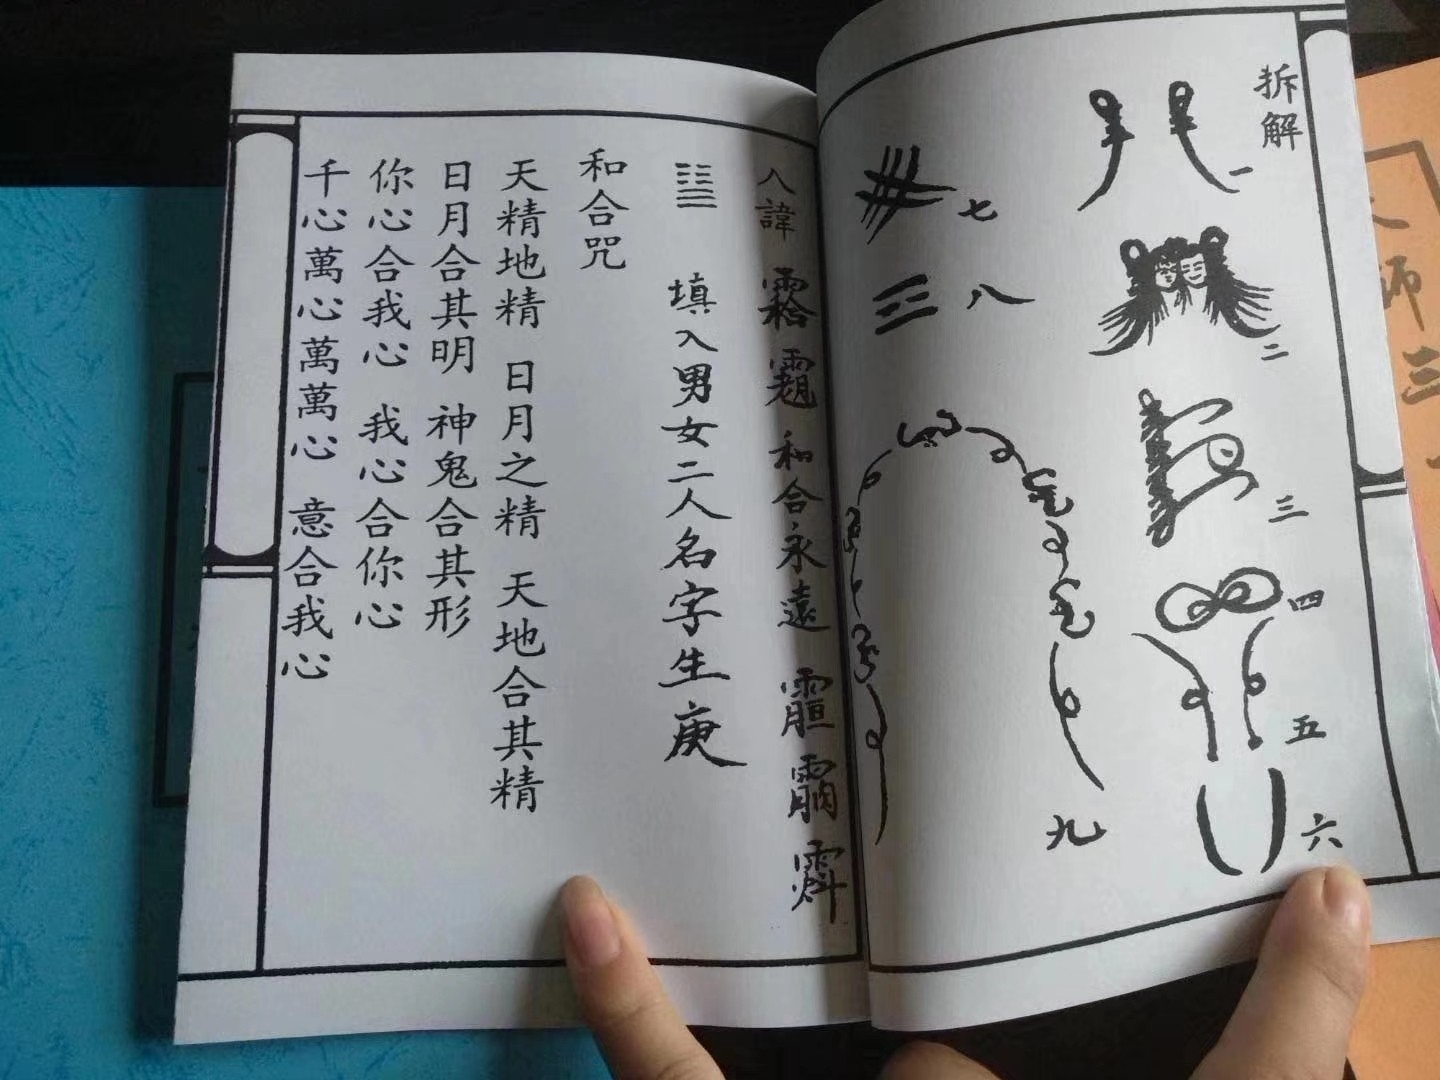 拆解
一
二
三
四
五
六
七
八
九
入諱
和合永遠
填入男女二人名字生庚
和合咒
天精地精 日月之精 天地合其精
日月合其明 神鬼合其形
你心合我心 我心合你心
千心萬心萬萬心 意合我心
師三